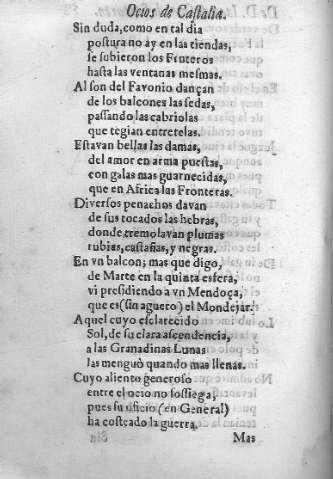 Ocios de Castalia.
Sin duda, como en tal dia
postura no ay en las tiendas,
se subieron los Fruteros
hasta las ventanas mesmas.
Al son del Favonio dançan
de los balcones las sedas,
passando las cabriolas
que tegian entretelas.
Estavan bellas las damas,
del amor en arma puestas,
con galas mas guarnecidas,
que en Africa las Fronteras.
Diversos penachos davan
de sus tocados las hebras,
donde tremolavan plumas
rubias, castañas, y negras.
En vn balcon; mas que digo,
de Marte en la quinta esfera,
vi presidiendo a vn Mendoça,
que es (sin aguero) el Mondejar.
Aquel cuyo esclarecido
Sol, de su clara ascendencia,
a las Granadinas Lunas
las menguò quando mas llenas.
Cuyo aliento generoso
entre el ocio no sossiega,
pues su oficio (en General)
ha costeado la guerra.
Mas